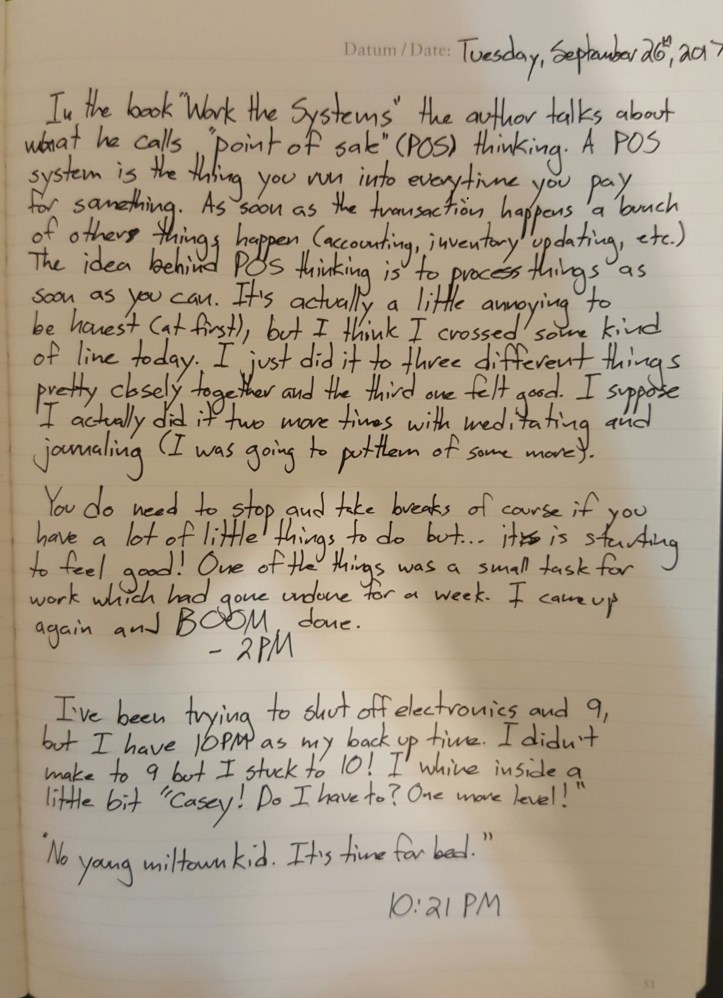 Datum / Date: Tuesday, September 26th, 2017
In the book "Work the Systems" the author talks about
what he calls "point of sale" (POS) thinking. A POS
system is the thing you run into everytime you pay
for something. As soon as the transaction happens a bunch
of others things happen (accounting, inventory updating, etc.)
The idea behind POS thinking is to process things as
soon as you can. It's actually a little annoying to
be honest (at first), but I think I crossed some kind
of line today. I just did it to three different things
pretty closely together and the third one felt good. I suppose
I actually did it two more times with meditating and
journaling (I was going to put them of some more).
You do need to stop and take breaks of course if you
have a lot of little things to do but... it is starting
to feel good! One of the things was a small task for
work which had gone undone for a week. I came up
again and BOOM, done.
- 2PM
I've been trying to shut off electronics and 9,
but I have 10PM as my back up time. I didn't
make to 9 but I stuck to 10! I whine inside a
little bit "Casey! Do I have to? One more level!"
"No young miltown kid. It's time for bed."
10:21 PM
51